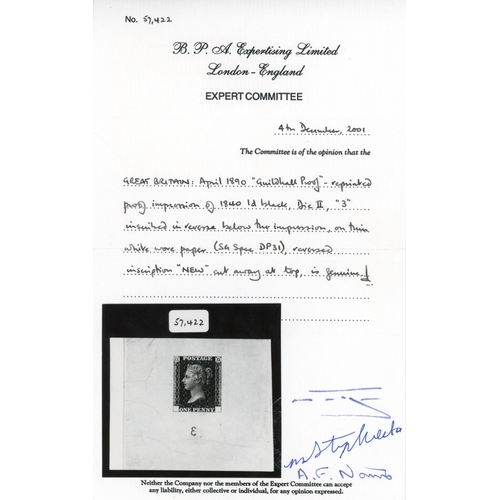 No. 57,422
B. P. A. Expertising Limited
London - England
EXPERT COMMITTEE
4th December, 2001
The Committee is of the opinion that the
GREAT BRITAIN: April 1890 "Guildhall Proof" - reprinted
proof impression of 1840 1d black, Die II, "3"
inscribed in reverse below the impression, on thin
white wove paper (SG Spec DP31), reversed
inscription "NEW" cut away at top, is genuine.
57,422
POSTAGE
ONE PENNY
Neither the Company nor the members of the Expert Committee can accept
any liability, either collective or individual, for any opinion expressed.